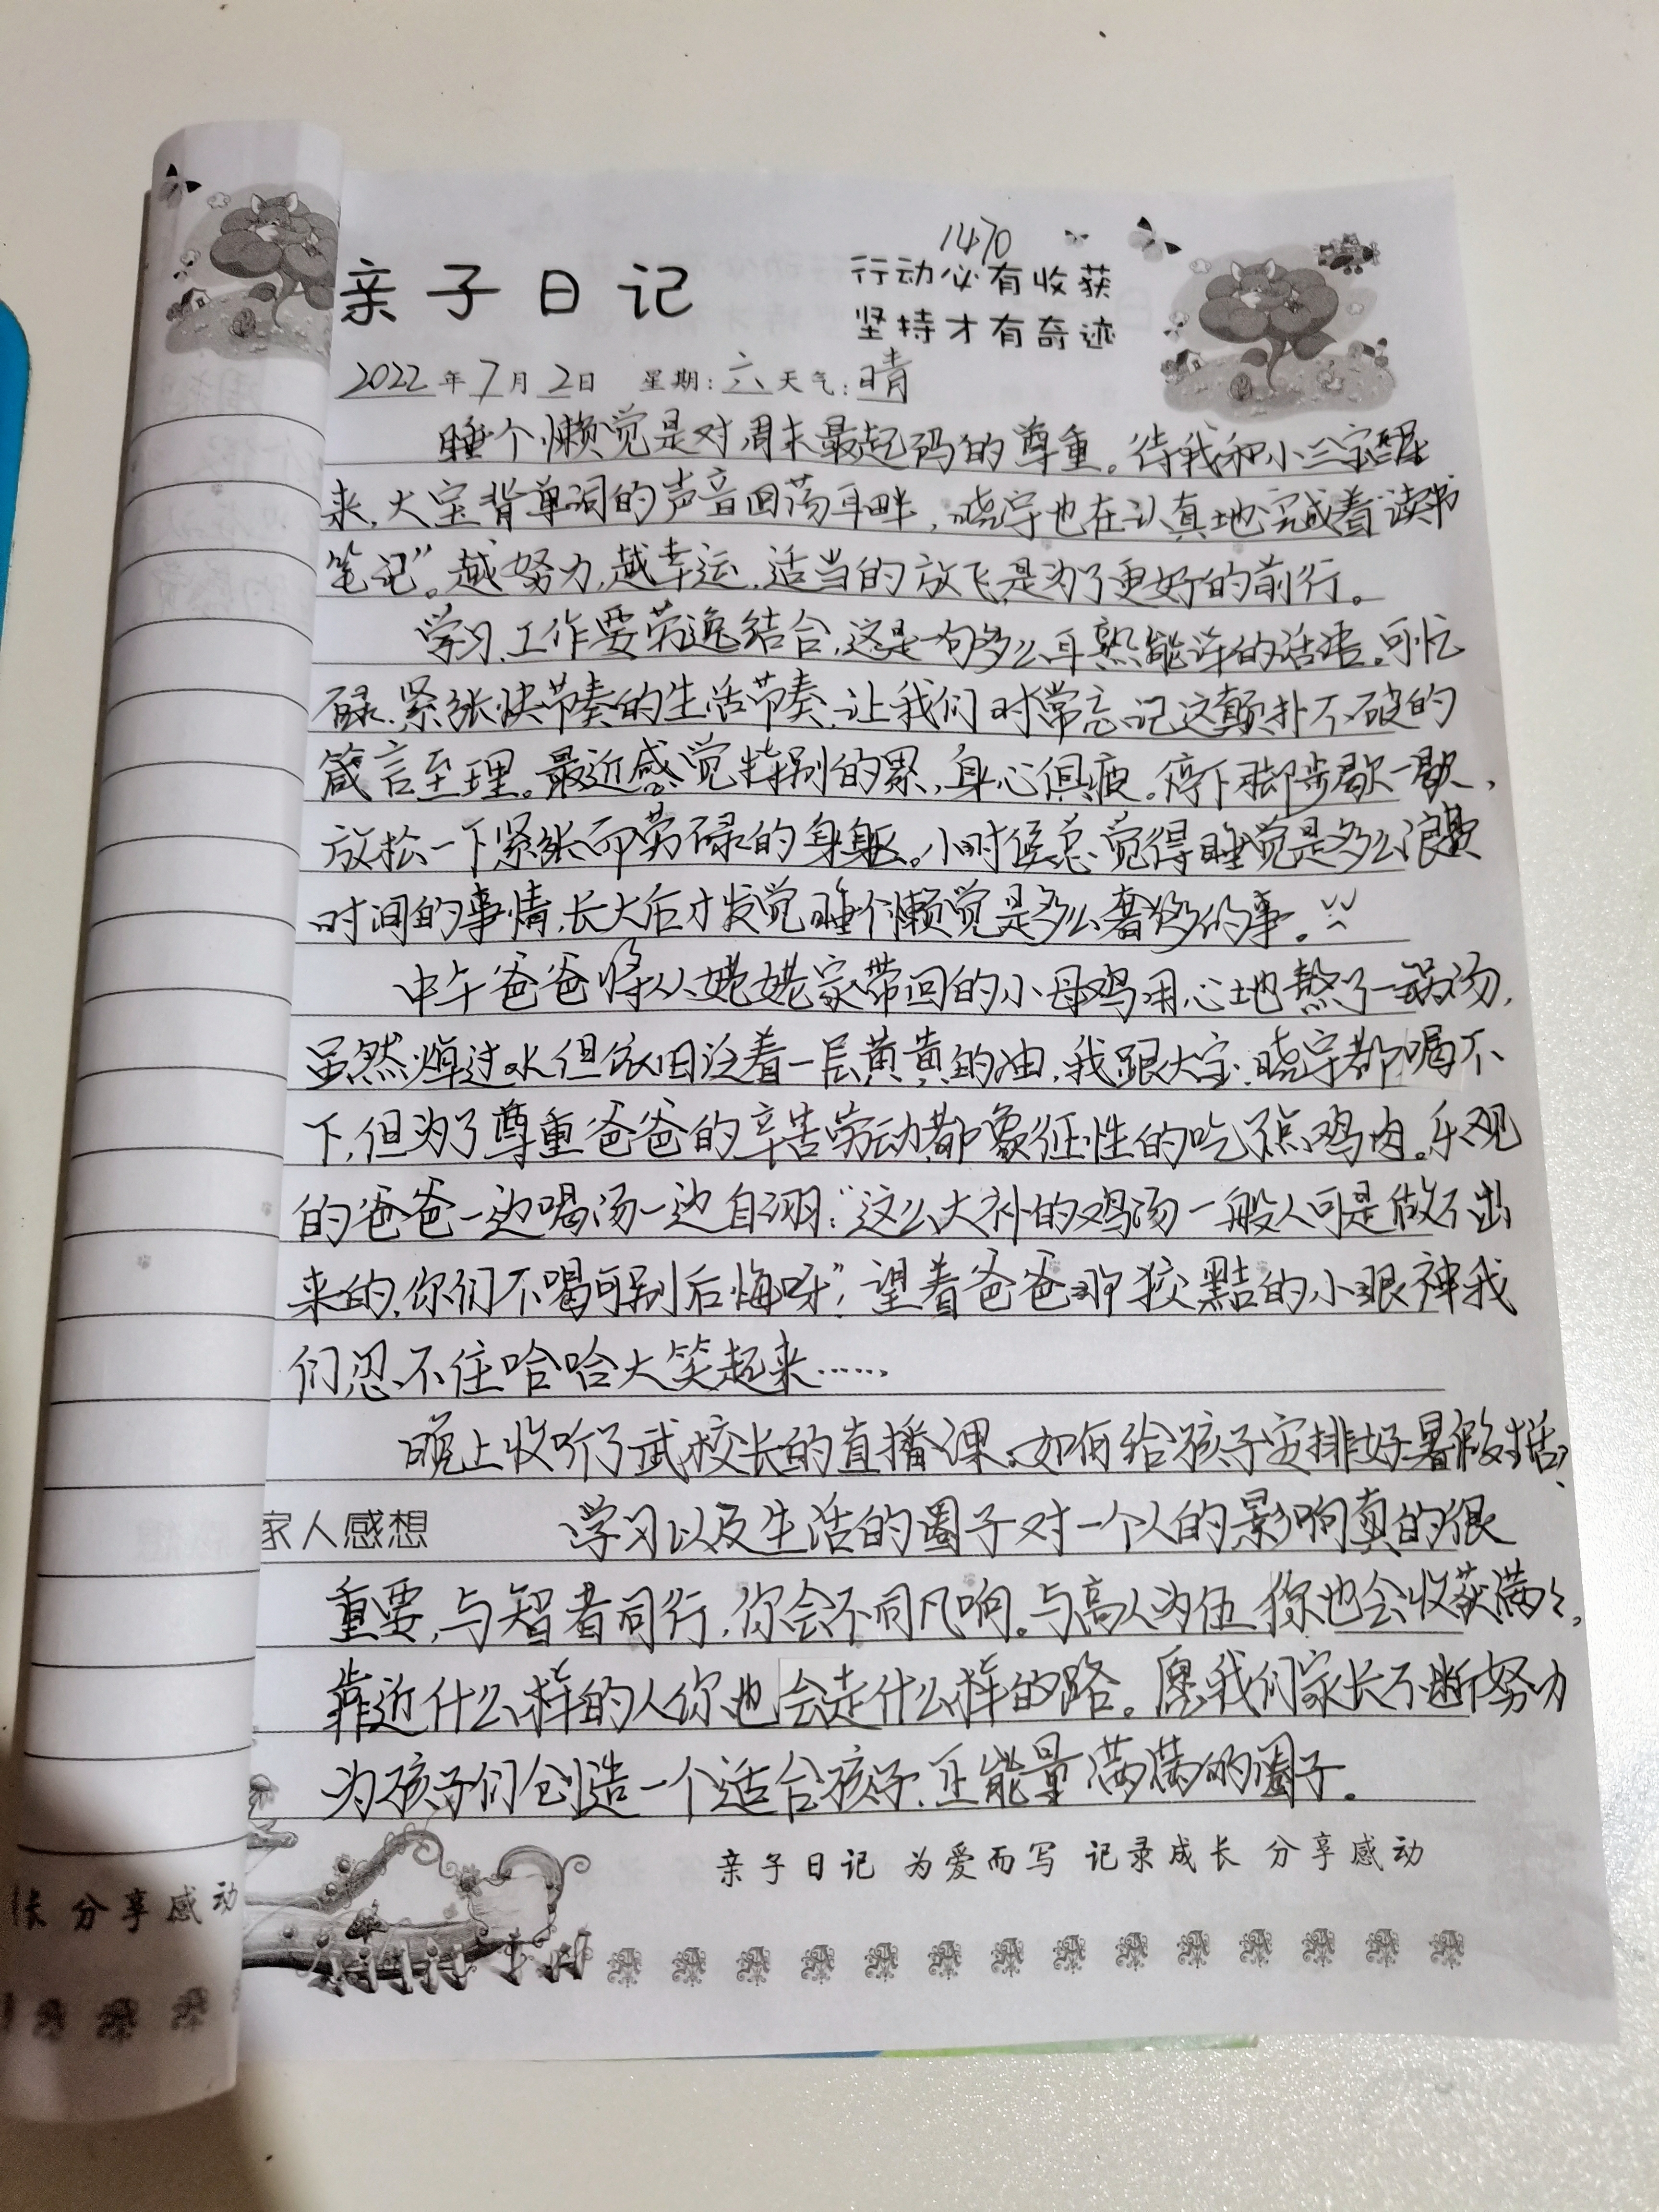 1470
亲子日记
行动必有收获
坚持才有奇迹
2022年7月2日 星期:六 天气:晴
睡个懒觉是对周末最起码的尊重。待我和小三宝醒
来,大宝背单词的声音回荡耳畔,晓宇也在认真地完成着“读书
笔记”。越努力,越幸运,适当的放飞是为了更好的前行。
学习、工作要劳逸结合,这是一句多么耳熟能详的话语。可忙
碌、紧张快节奏的生活节奏,让我们时常忘记这颠扑不破的
箴言至理。最近感觉特别的累,身心俱疲。停下脚步歇一歇,
放松一下紧张而劳碌的身躯。小时候总觉得睡觉是多么浪费
时间的事情,长大后才发觉睡个懒觉是多么奢侈的事。
中午爸爸将从姥姥家带回的小母鸡用心地熬了一锅汤,
虽然焯过水但依旧泛着一层黄黄的油,我跟大宝、晓宇都喝不
下,但为了尊重爸爸的辛苦劳动都象征性的吃了点鸡肉。乐观
的爸爸一边喝汤一边自诩:“这么大补的鸡汤一般人可是做不出
来的,你们不喝可别后悔呀”!望着爸爸那狡黠的小眼神我
们忍不住哈哈大笑起来……
晚上收听了武校长的直播课。如何给孩子安排好暑假生活?
家人感想 学习以及生活的圈子对一个人的影响真的很
重要,与智者同行,你会不同凡响。与高人为伍,你也会收获满满,
靠近什么样的人你也会走什么样的路。愿我们家长不断努力
为孩子们创造一个适合孩子、正能量满满的圈子。
亲子日记 为爱而写 记录成长 分享感动
长 分享感动